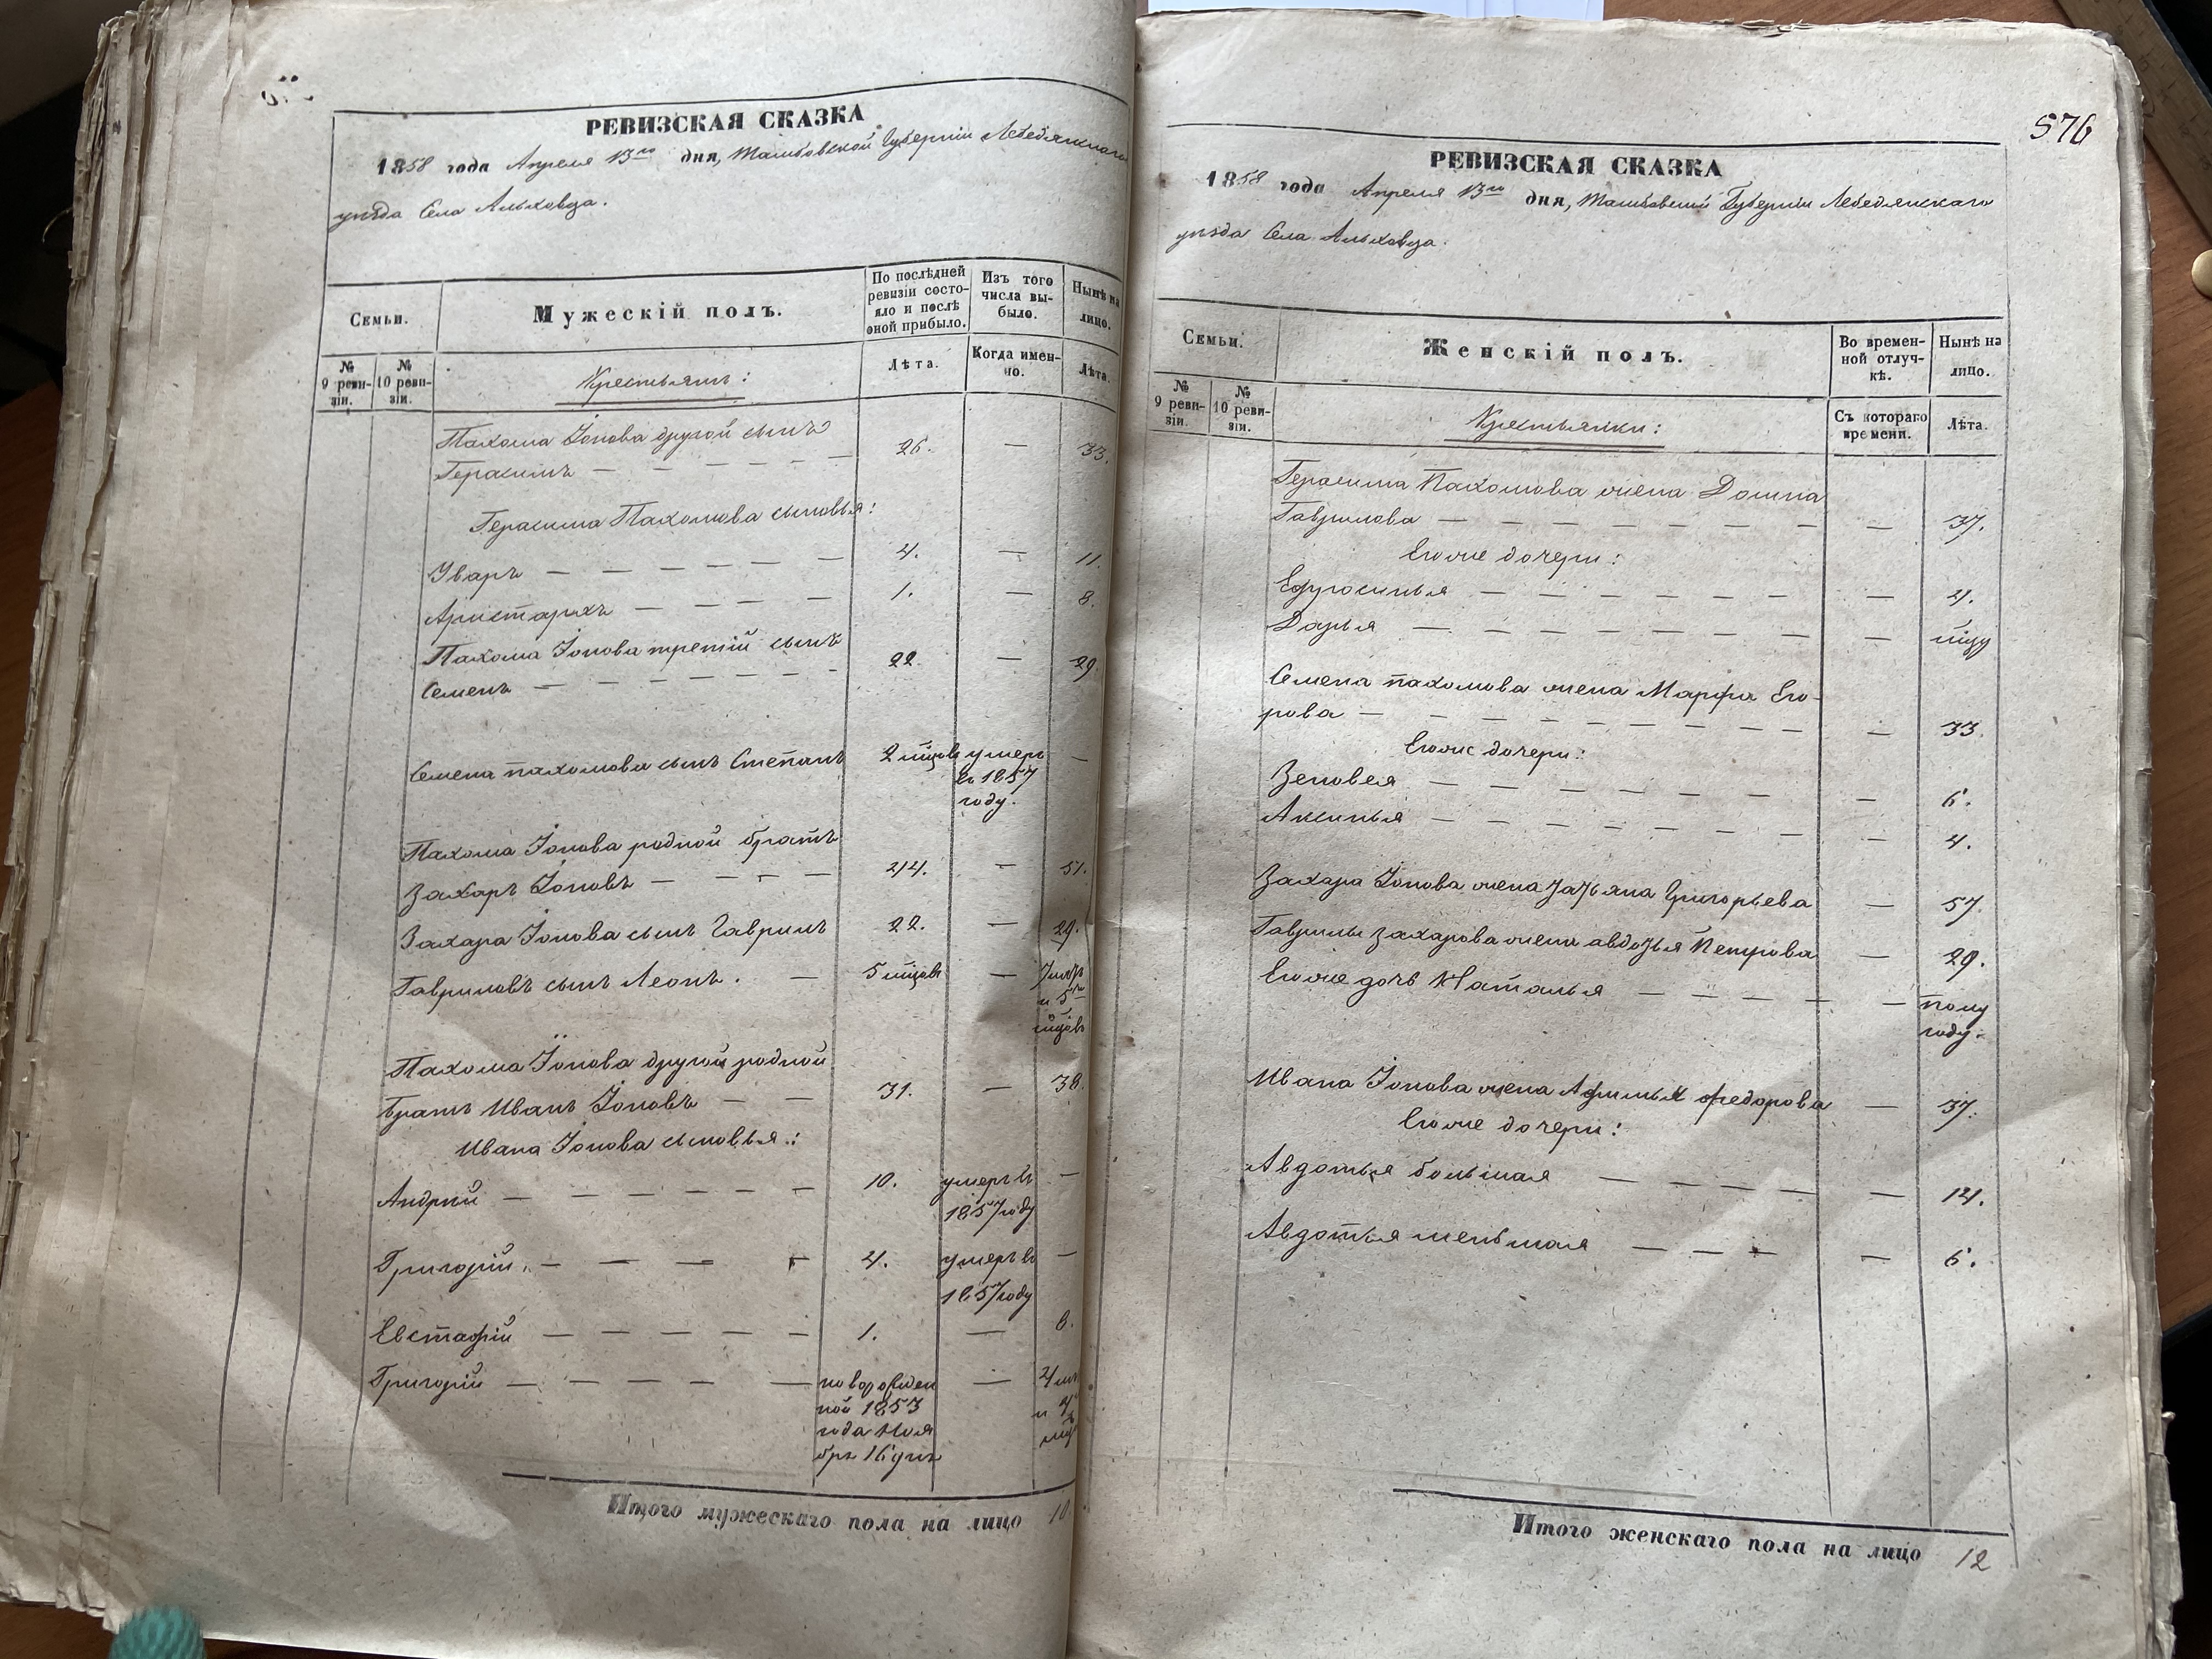 РЕВИЗСКАЯ СКАЗКА
1858 года Апреля 13го дня, Тамбовской Губерніи Лебедянскаго
уѣзда Села Альховца.
Семьи.
Мужескій полъ.
По послѣдней ревизіи состояло и послѣ оной прибыло.
Изъ того числа выбыло.
Нынѣ на лицо.
№ 9 ревизіи.
№ 10 ревизіи.
Крестьянъ:
Лѣта.
Когда именно.
Лѣта.
Пахома Іонова другой сынъ
Герасимъ — — — — — — 26. — 33.
Герасима Пахомова сыновья:
Уваръ — — — — — — 4. — 11.
Аристархъ — — — — 1. — 8.
Пахома Іонова третій сынъ
Семенъ — — — — — — 22. — 29.
Семена пахомова сынъ Степанъ 2 мцовъ умеръ —
въ 1857
году.
Пахома Іонова родной братъ
Захаръ Іоновъ — — — — 44. — 51.
Захара Іонова сынъ Гаврилъ 22. — 29.
Гавриловъ сынъ Леонъ. — 5 мцовъ — 7 лѣтъ
и 5ть
мцовъ
Пахома Іонова другой родной
братъ Иванъ Іоновъ — — 31. — 38.
Ивана Іонова сыновья:
Андрей — — — — — — 10. умеръ въ —
1857 году
Григорій. — — — — 4. умеръ въ —
1857 году
Евстафій — — — — — 1. — 8.
Григорій — — — — — новорожден — 4 лѣт
ной 1853 и 4
года Ноя мцъ
бря 16 дня
Итого мужескаго пола на лицо 10.
576
РЕВИЗСКАЯ СКАЗКА
1858 года Апреля 13го дня, Тамбовской Губерніи Лебедянскаго
уѣзда Села Альховца.
Семьи.
Женскій полъ.
Во временной отлучкѣ.
Нынѣ на лицо.
№ 9 ревизіи.
№ 10 ревизіи.
Крестьянки:
Съ котораго времени.
Лѣта.
Герасима Пахомова жена Домна
Гаврилова — — — — — — — — 37.
Его же дочери:
Ефросинья — — — — — — — 4.
Дарья — — — — — — — — мцу
Семена пахомова жена Марфа Его-
рова — — — — — — — — — 33.
Его же дочери:
Зеновея — — — — — — — 6.
Аксинья — — — — — — — 4.
Захара Іонова жена Татьяна Григорьева — 57.
Гаврилы захарова жена авдотья Петрова — 29.
Его же дочь Наталья — — — — — полу
году.
Ивана Іонова жена Афимья федорова — 37.
Его же дочери:
Авдотья большая — — — — — 14.
Авдотья меньшая — — — — 6.
Итого женскаго пола на лицо 12